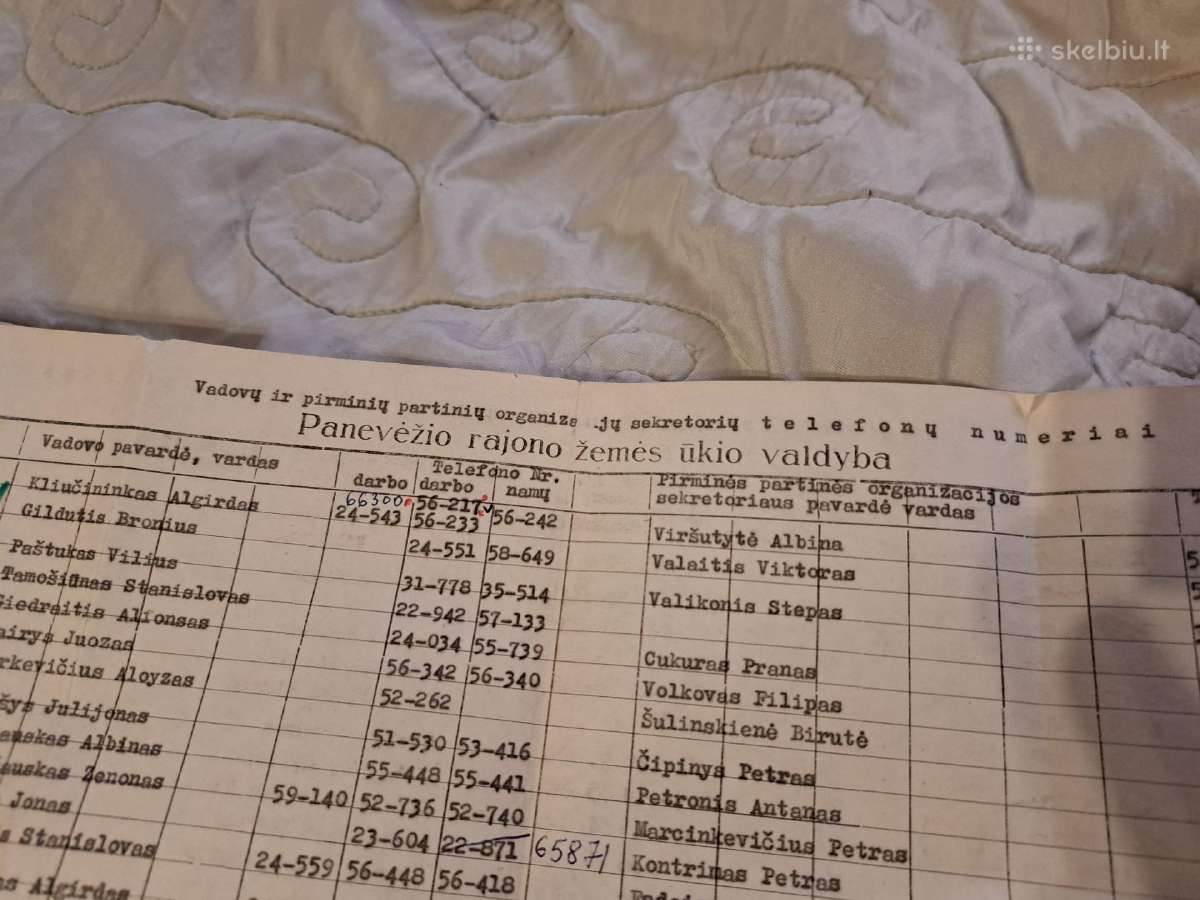 skelbiu.lt
Vadovų ir pirminių partinių organiza jų sekretorių telefonų numeriai
Panevėžio rajono žemės ūkio valdyba
Vadovo pavardė, vardas
Telefono Nr.
darbo darbo namų
Pirminės partinės organizacijos
sekretoriaus pavardė vardas
Kliučininkas Algirdas 66300 56-217
24-543 56-233 56-242 Viršutytė Albina
Gildutis Bronius 24-551 58-649 Valaitis Viktoras
Paštukas Vilius 31-778 35-514 Valikonis Stepas
Tamošiūnas Stanislovas 22-942 57-133
Giedraitis Alfonsas 24-034 55-739 Cukuras Pranas
Juozas 56-342 56-340 Volkovas Filipas
Aloyzas 52-262 Šulinskienė Birutė
Julijonas 51-530 53-416 Čipinys Petras
Albinas 55-448 55-441 Petronis Antanas
Zenonas 59-140 52-736 52-740 Marcinkevičius Petras
Jonas 23-604 22-871 65871 Kontrimas Petras
Stanislovas 24-559 56-448 56-418
Algirdas